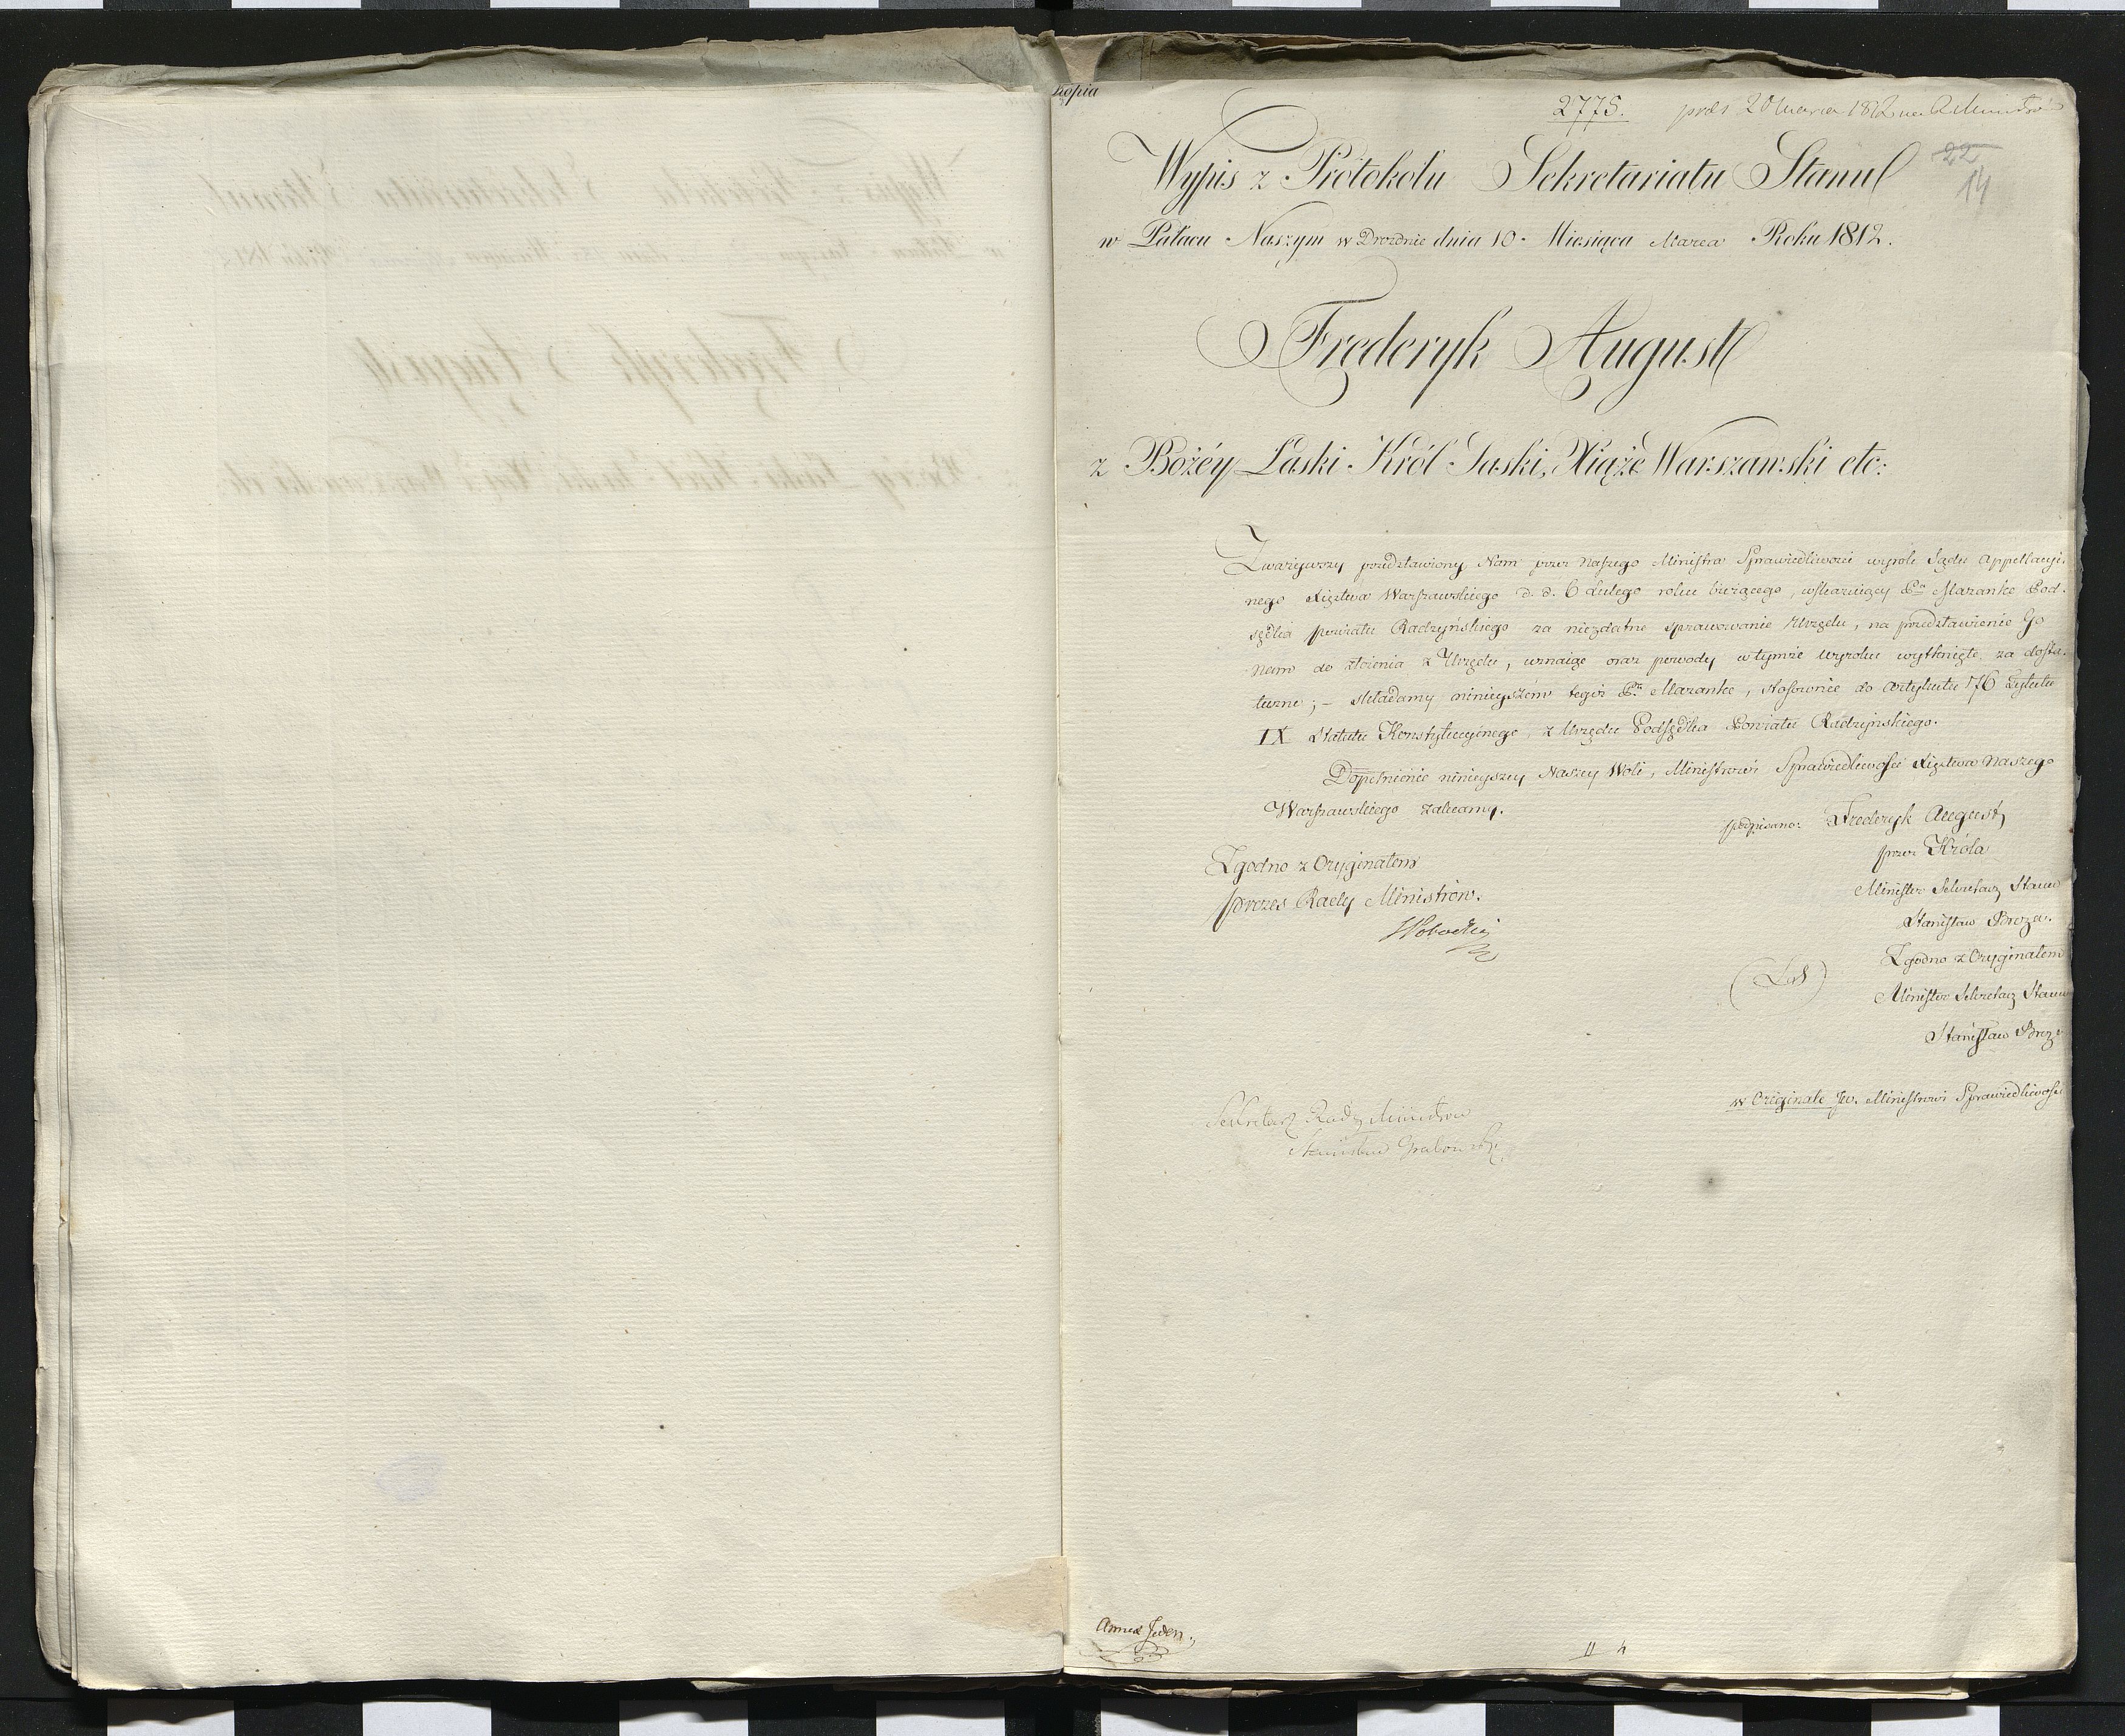 Kopia
2775. præs 20 Marca 1812 na R Ministrów
22
14
Wypis z Protokołu Sekretariatu Stanu
w Pałacu Naszym w Dreznie dnia 10. Miesiąca Marca Roku 1812.
Frederyk August
z Bożéy Łaski Król Saski, Xiąże Warszawski etc:
Zważywszy przedstawiony Nam przez Naszego Ministra Sprawiedliwości wyrok Sądu Appellacyi-
nego Xięztwa Warszawskiego d. d. 6 Lutego roku bieżącego, wskazuiący Pa Mazanke Pod-
sędka powiatu Radzyńskiego za niezdatne sprawowanie Urzędu, na przedstawienie Go
Nam do złożenia z Urzędu, uznaiąc oraz powody w tymże wyroku wytknięte za dosta-
teczne; – składamy ninieyszém tegoż Pa Mazanke, stosownie do Artykułu 176 Tytułu
IX Statutu Konstytucyinego, z Urzędu Podsędka Powiatu Radzyńskiego.
Dopełnienie ninieyszey Naszey Woli, Ministrowi Sprawiedliwości Xięztwa Naszego
Warszawskiego zalecamy.
podpisano: Frederyk August,
przez Króla
Minister Sekretarz Stanu
Stanisław Breza.
Zgodno z Oryginałem
Prezes Rady Ministrów.
(LS)
Zgodno z Oryginałem
Minister Sekretarz Stanu
Stanisław Breza
w Originale Jw. Ministrowi Sprawiedliwości
Sekretarz Rady Ministrów
Stanisław Grabowski
Annex Jeden.